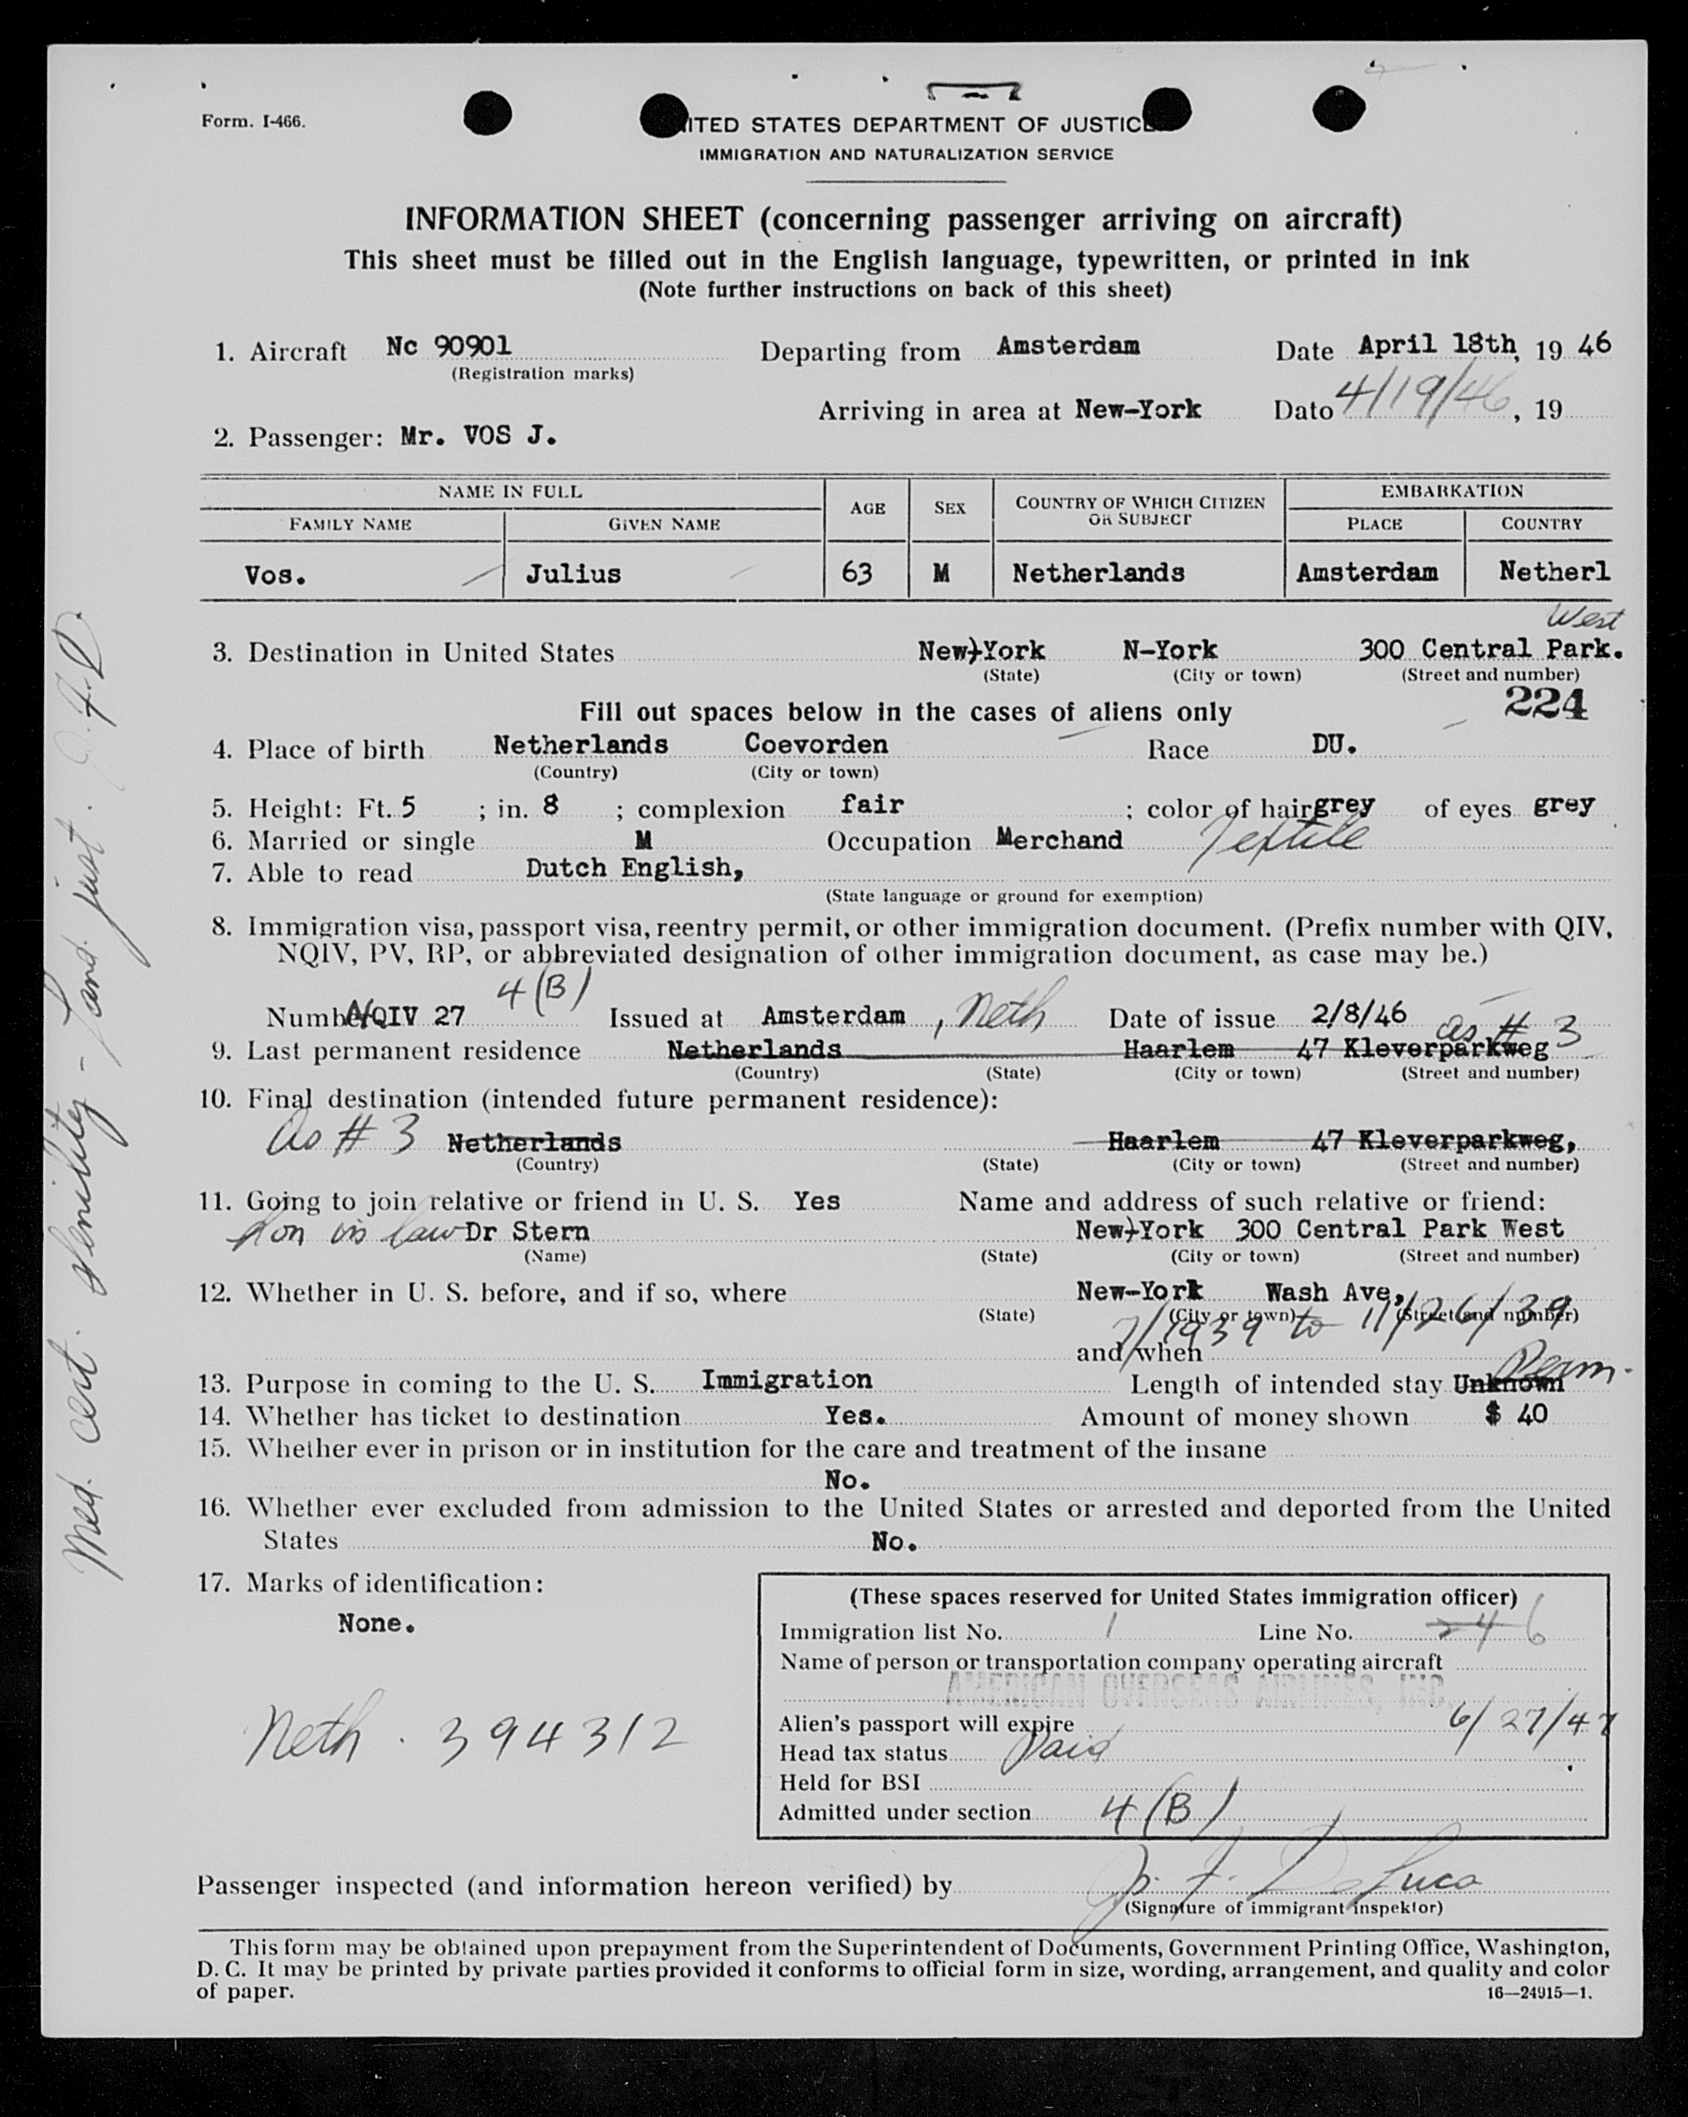 Form. I-466.
ITED STATES DEPARTMENT OF JUSTICE
IMMIGRATION AND NATURALIZATION SERVICE
INFORMATION SHEET (concerning passenger arriving on aircraft)
This sheet must be filled out in the English language, typewritten, or printed in ink
(Note further instructions on back of this sheet)
1. Aircraft Nc 90901 Departing from Amsterdam Date April 18th, 19 46
(Registration marks)
Arriving in area at New-York Date 4/19/46, 19
2. Passenger: Mr. VOS J.
NAME IN FULL AGE SEX COUNTRY OF WHICH CITIZEN OR SUBJECT EMBARKATION
FAMILY NAME GIVEN NAME PLACE COUNTRY
Vos. Julius 63 M Netherlands Amsterdam Netherl
West
3. Destination in United States New-York N-York 300 Central Park.
(State) (City or town) (Street and number)
224
Fill out spaces below in the cases of aliens only
4. Place of birth Netherlands Coevorden Race DU.
(Country) (City or town)
5. Height: Ft. 5 ; in. 8 ; complexion fair ; color of hair grey of eyes grey
6. Married or single M Occupation Merchand Textile
7. Able to read Dutch English,
(State language or ground for exemption)
8. Immigration visa, passport visa, reentry permit, or other immigration document. (Prefix number with QIV,
NQIV, PV, RP, or abbreviated designation of other immigration document, as case may be.)
4(B)
Number NQIV 27 Issued at Amsterdam, Neth Date of issue 2/8/46
as # 3
9. Last permanent residence Netherlands Haarlem 47 Kleverparkweg
(Country) (State) (City or town) (Street and number)
10. Final destination (intended future permanent residence):
As # 3 Netherlands Haarlem 47 Kleverparkweg,
(Country) (State) (City or town) (Street and number)
11. Going to join relative or friend in U. S. Yes Name and address of such relative or friend:
Son in law Dr Stern New-York 300 Central Park West
(Name) (State) (City or town) (Street and number)
12. Whether in U. S. before, and if so, where New-York Wash Ave,
(State) (City or town) (Street and number)
7/1939 to 11/26/39
and when
13. Purpose in coming to the U. S. Immigration Length of intended stay Unknown Perm.
14. Whether has ticket to destination Yes. Amount of money shown $ 40
15. Whether ever in prison or in institution for the care and treatment of the insane
No.
16. Whether ever excluded from admission to the United States or arrested and deported from the United
States No.
17. Marks of identification:
None.
Neth. 394312
(These spaces reserved for United States immigration officer)
Immigration list No. 1 Line No. 6
Name of person or transportation company operating aircraft
AMERICAN OVERSEAS AIRLINES, INC.
Alien's passport will expire 6/27/47
Head tax status Paid
Held for BSI
Admitted under section 4(B)
Passenger inspected (and information hereon verified) by J. F. DeLuca
(Signature of immigrant inspektor)
This form may be obtained upon prepayment from the Superintendent of Documents, Government Printing Office, Washington,
D. C. It may be printed by private parties provided it conforms to official form in size, wording, arrangement, and quality and color
of paper.
16—24915—1.
Med. cert. senility - Land. just. J.F.D.